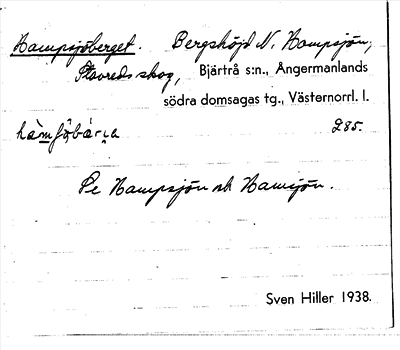 Hampsjöberget. Bergshöjd N. Hampsjön,
Stavreds skog, Bjärtrå s:n., Ångermanlands
södra domsagas tg., Västernorrl. l.
285.
Se Hampsjön och Hamsjön.
Sven Hiller 1938.